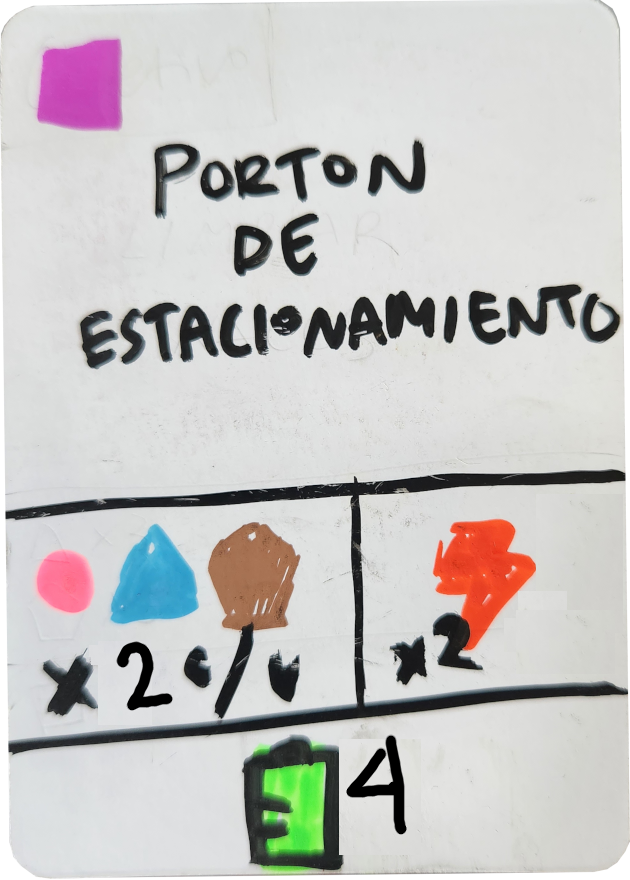 PORTON
DE
ESTACIONAMIENTO
x 2 c/u
x2
4